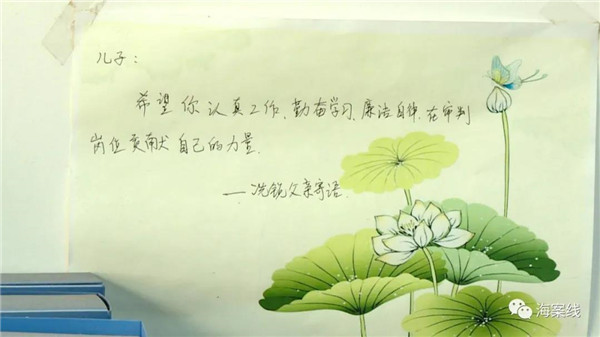 儿子：
希望你认真工作、勤奋学习、廉洁自律、在审判
岗位贡献自己的力量.
—冼锐父亲寄语.
海案线